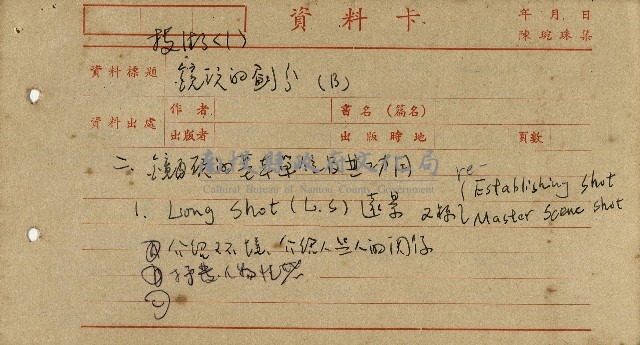 資料卡
年 月 日
陳琬琭集
技術<1>
資料標題 鏡頭的劃分 (B)
資料出處 作者 書名(篇名)
出版者 出版時地 頁數
南投縣政府文化局
二、鏡頭的基本單位及其功用
Cultural Bureau of Nantou County Government
1. Long Shot (L.S) 遠景 又稱 re- Establishing Shot
Master Scene Shot
a 介紹環境、介紹人與人的關係
b
c